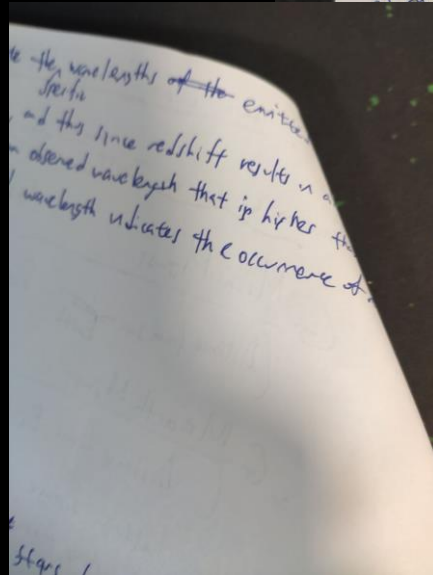 the wavelengths of the emitte
specific
, and thus since redshift results in a
observed wavelength that is higher tha
wavelength indicates the occurrence of
stars